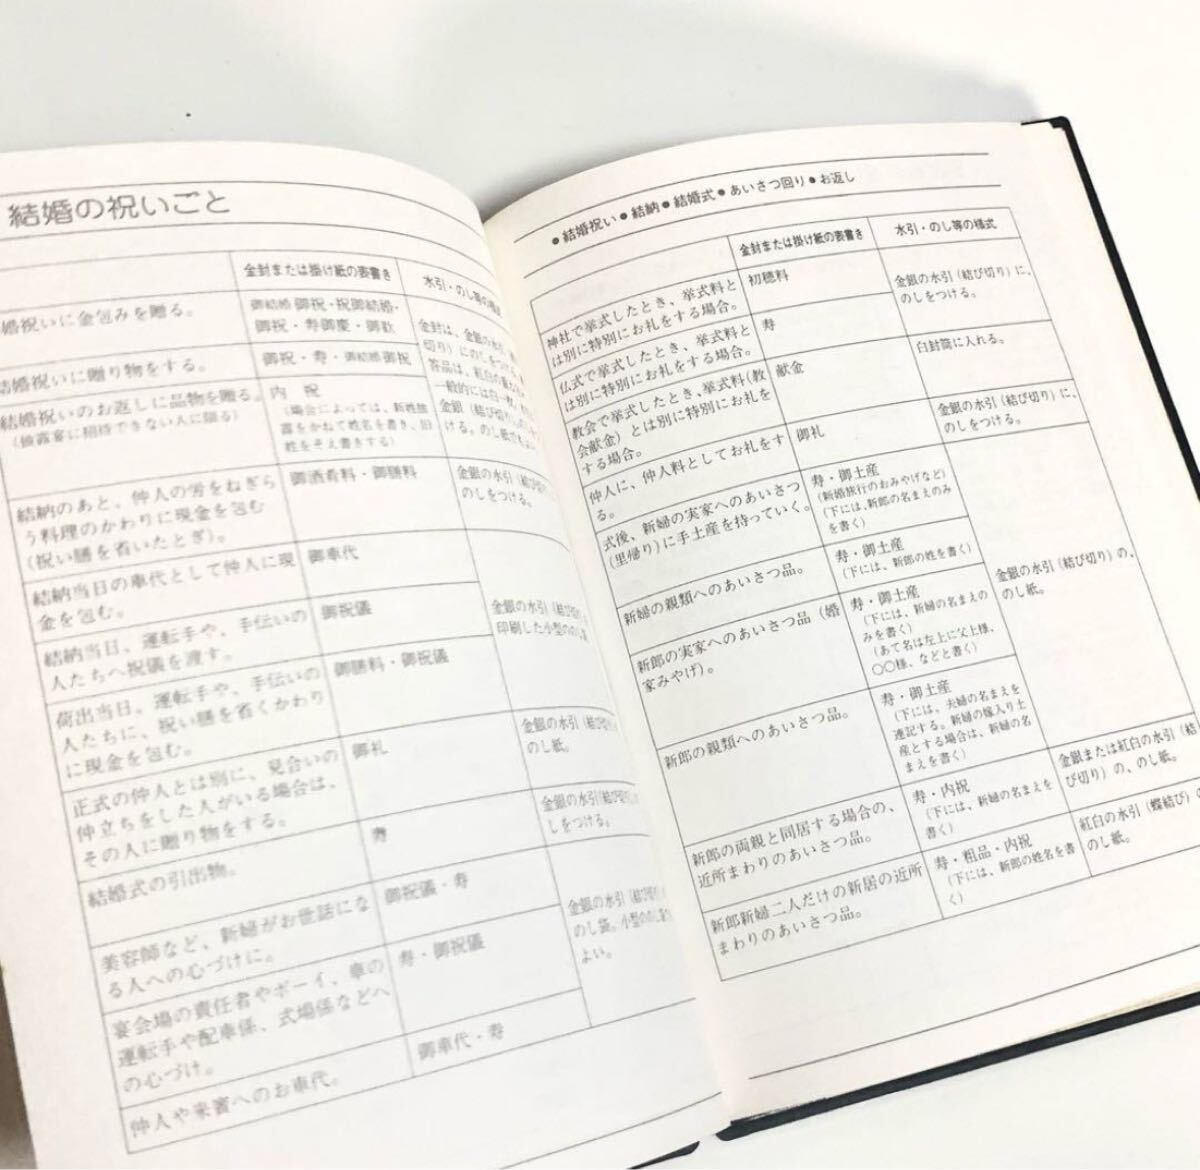 結婚の祝いごと
金封または掛け紙の表書き
水引・のし等の
婚祝いに金包みを贈る。
御結婚御祝・祝御結婚・
御祝・寿御慶・御歓
金封は、金銀の水引
切り）にのしをつける。
結婚祝いに贈り物をする。
御祝・寿・御結婚御祝
結婚祝いのお返しに品物を贈る。
（披露宴に招待できない人に限る）
内　祝
（場合によっては、新姓披
露をかねて姓名を書き、旧
姓をそえ書きする）
金銀（結び切り
ける。のし紙でも
結納のあと、仲人の労をねぎら
う料理のかわりに現金を包む
（祝い膳を省いたとき）。
御酒肴料・御膳料
金銀の水引（結び切り
のしをつける。
結納当日の車代として仲人に現
金を包む。
御車代
結納当日、運転手や、手伝いの
人たちへ祝儀を渡す。
御祝儀
金銀の水引（結び切り
印刷した小型ののし
荷出当日、運転手や、手伝いの
人たちに、祝い膳を省くかわり
に現金を包む。
御膳料・御祝儀
正式の仲人とは別に、見合いの
仲立ちをした人がいる場合は、
その人に贈り物をする。
御礼
金銀の水引（結び切り
のし紙。
結婚式の引出物。
寿
金銀の水引（結び切り
しをつける。
美容師など、新婦がお世話にな
る人への心づけに。
御祝儀・寿
金銀の水引（結び切り
のし袋。小型のし袋
よい。
宴会場の責任者やボーイ、車の
運転手や配車係、式場係などへ
の心づけ。
寿・御祝儀
仲人や来賓へのお車代。
御車代・寿
●結婚祝い●結納●結婚式●あいさつ回り●お返し
金封または掛け紙の表書き
水引・のし等の様式
神社で挙式したとき、挙式料と
は別に特別にお礼をする場合。
初穂料
金銀の水引（結び切り）に、
のしをつける。
仏式で挙式したとき、挙式料と
は別に特別にお礼をする場合。
寿
教会で挙式したとき、挙式料（教
会献金）とは別に特別にお礼を
する場合。
献金
白封筒に入れる。
仲人に、仲人料としてお礼をす
る。
御礼
金銀の水引（結び切り）に、
のしをつける。
式後、新婦の実家へのあいさつ
（里帰り）に手土産を持っていく。
寿・御土産
（新婚旅行のおみやげなど）
（下には、新郎の名まえのみ
を書く）
新婦の親類へのあいさつ品。
寿・御土産
（下には、新郎の姓を書く）
金銀の水引（結び切り）の、
のし紙。
新郎の実家へのあいさつ品（婚
家みやげ）。
寿・御土産
（下には、新婦の名まえの
みを書く）
（あて名は左上に父上様、
○○様、などと書く）
新郎の親類へのあいさつ品。
寿・御土産
（下には、夫婦の名まえを
連記する。新婦の嫁入り土
産とする場合は、新婦の名
まえを書く）
新郎の両親と同居する場合の、
近所まわりのあいさつ品。
寿・内祝
（下には、新婦の名まえを
書く）
金銀または紅白の水引（結
び切り）の、のし紙。
新郎新婦二人だけの新居の近所
まわりのあいさつ品。
寿・粗品・内祝
（下には、新郎の姓名を書
く）
紅白の水引（蝶結び）の
のし紙。